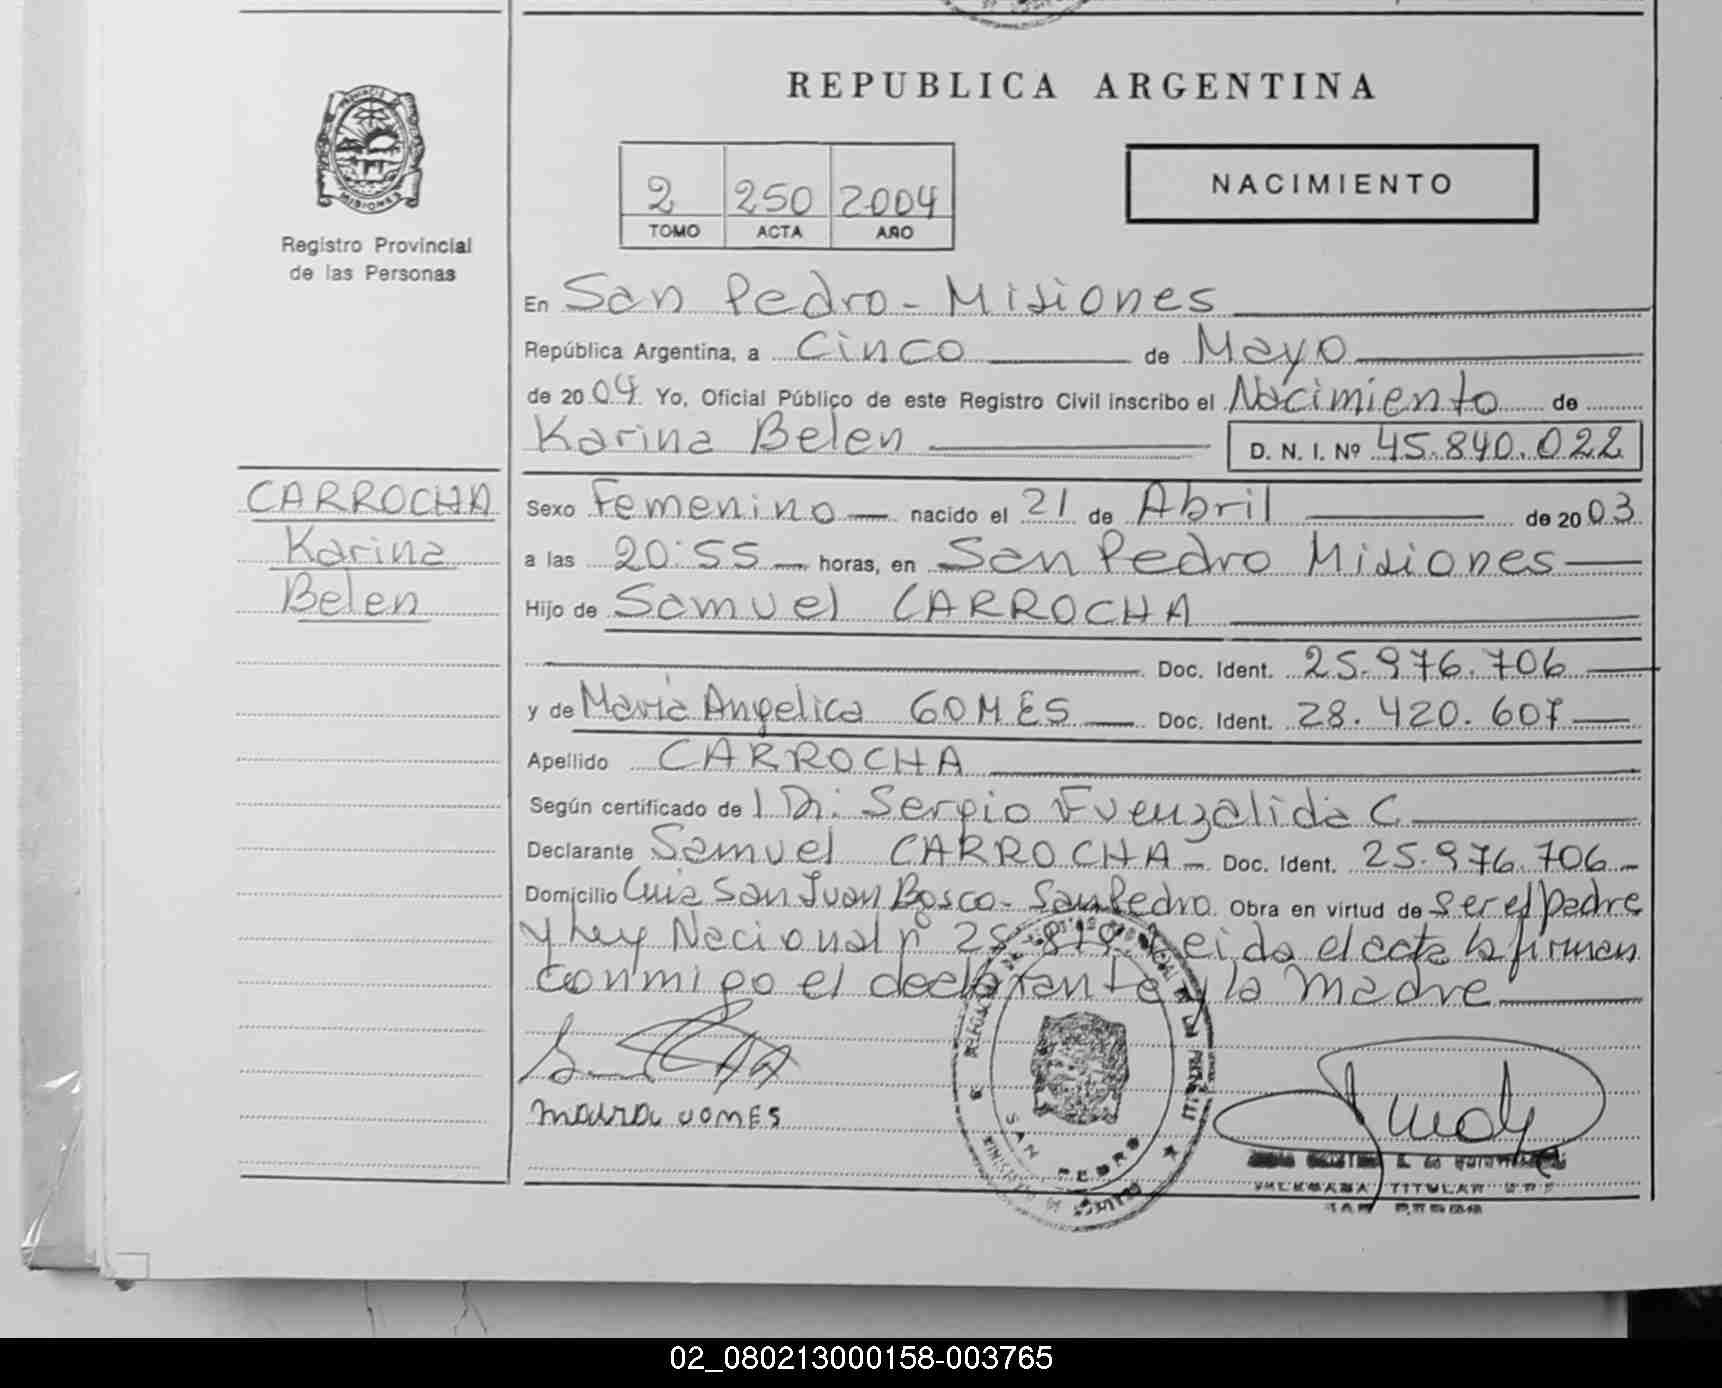 REPUBLICA ARGENTINA
PROVINCIA DE
MISIONES
Registro Provincial
de las Personas
2 250 2004
TOMO ACTA AÑO
NACIMIENTO
En San Pedro - Misiones
República Argentina, a Cinco de Mayo
de 2004 Yo, Oficial Público de este Registro Civil inscribo el Nacimiento de
Karina Belen D. N. I. Nº 45.840.022
CARROCHA
Karina
Belen
Sexo Femenino nacido el 21 de Abril de 2003
a las 20:55 horas, en San Pedro Misiones
Hijo de Samuel CARROCHA
Doc. Ident. 25.976.706
y de Maria Angelica GOMES Doc. Ident. 28.420.607
Apellido CARROCHA
Según certificado de Dr. Sergio Fuenzalida C
Declarante Samuel CARROCHA - Doc. Ident. 25.976.706
Domicilio San Juan Bosco - San Pedro Obra en virtud de ser el padre
y Ley Nacional nº 25.819. Leida el acta la firman
conmigo el declarante y la madre
SAN PEDRO
TITULAR